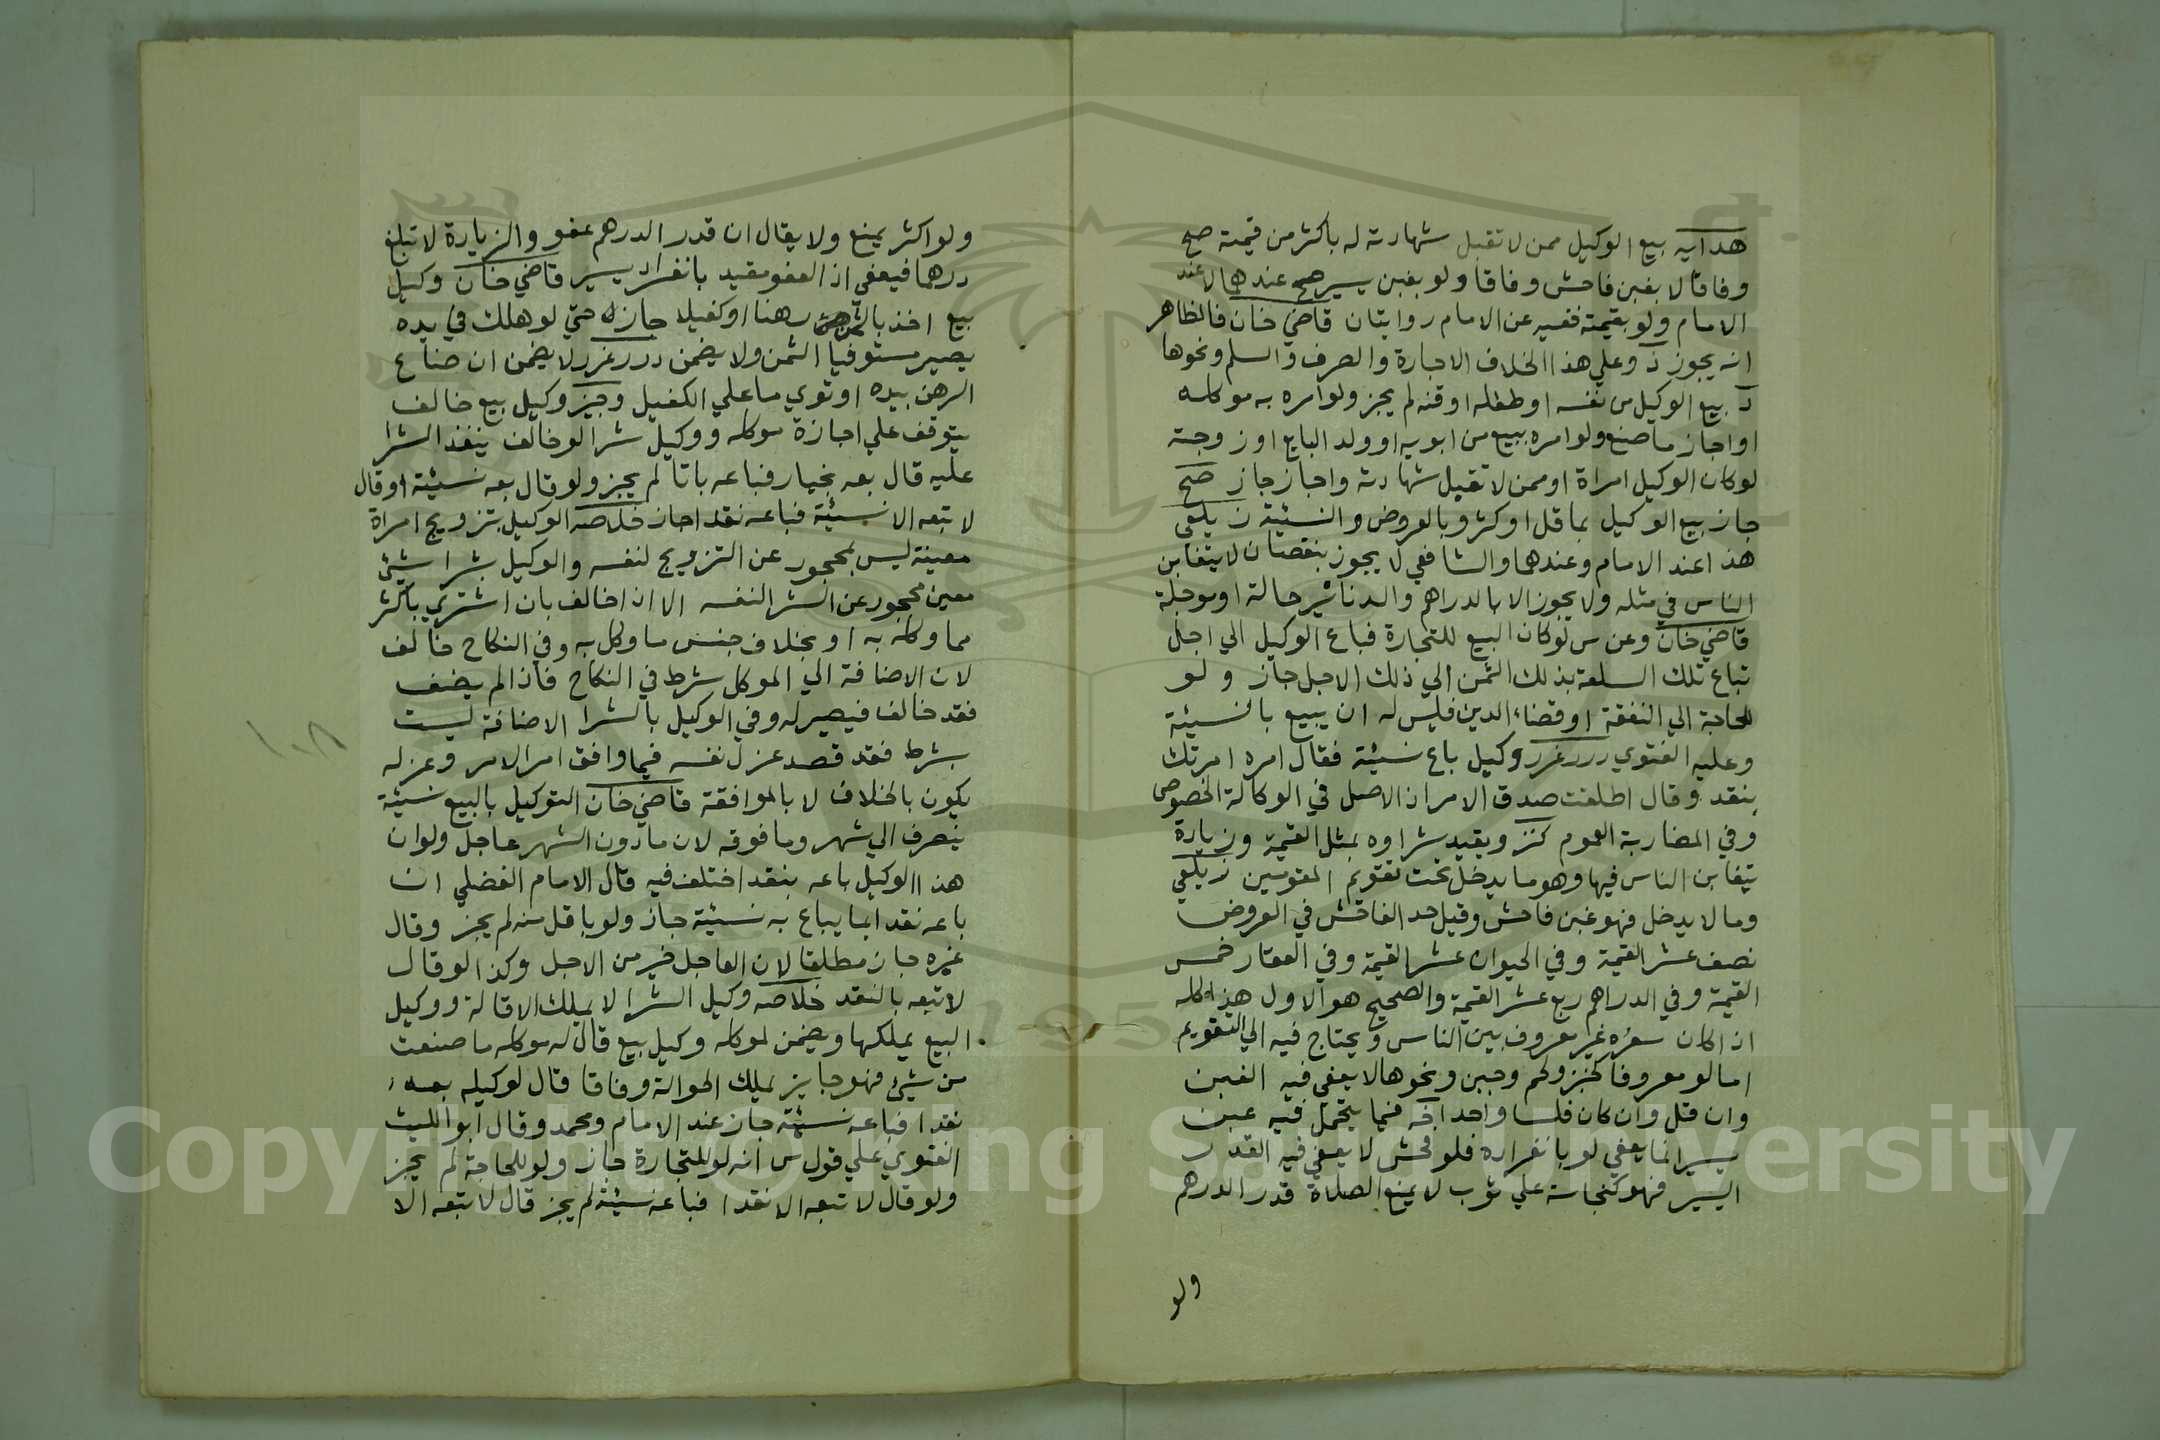 هدايه بيع الوكيل ممن لا تقبل شهادته له باكثر من قيمته صح
وفاقا لا بغبن فاحش وفاقا ولو بغبن يسير صح عندهما لا عند
الامام ولو بقيمته ففيه عن الامام روايتان قاضي خان فالظاهر
انه يجوز ذ وعلي هذا الخلاف الاجارة والصرف والسلم ونحوها
بيع الوكيل من نفسه او طفله او قنه لم يجز ولو امره به موكله
او اجاز ما صنع ولو امره ببيع من ابويه او ولد البايع او زوجته
لو كان الوكيل امراة او ممن لا تقبل شهادته واجاز جاز صح
جاز بيع الوكيل بما قل او كثر وبالعروض والنسئية زيلعي
هذا عند الامام وعندهما والشافعي لا يجوز بنقصان لا يتغابن
الناس في مثله ولا يجوز الا بالدراهم والدنانير حالة او موجلة
قاضي خان وعن س لو كان البيع للتجارة فباع الوكيل الي اجل
تباع تلك السلعة بذلك الثمن الي ذلك الاجل جاز ولو
للحاجة الي النفقة او قضاء الدين فليس له ان يبيع بالنسيئة
وعليه الفتوي درر غرر وكيل باع نسيئة فقال امره امرتك
بنقد وقال اطلقت صدق الامر اذ الاصل في الوكالة الخصوص
وفي المضاربة العموم كنز ويقيد شراوه بمثل القيمة وزيادة
يتغابن الناس فيها وهو ما يدخل تحت تقويم المقومين زيلعي
وما لا يدخل فهو غبن فاحش وقيل حد الفاحش في العروض
نصف عشر القيمة وفي الحيوان عشر القيمة وفي العقار خمس
القيمة وفي الدراهم ربع عشر القيمة والصحيح هو الاول هذا كله
اذا كان سعره غير معروف بين الناس ويحتاج فيه الي التقويم
اما لو معروفا كخبز ولحم وجبن ونحوها لا يعفي فيه الغبن
وان قل وان كان فلسا واحدا فيما يتحمل فيه غبن
يسير انما يعفي لو بانفراده فلو فحش لا يعفي فيه القدر
اليسير فهو كنجاسة علي ثوب لا يمنع الصلاة قدر الدرهم
ولو
ولو اكثر يمنع ولا يقال ان قدر الدرهم عفو والزيادة لا تبلغ
درهما فيعفي اذ العفو مقيد بانفراد يسير قاضي خان وكيل
بيع اخذ بالثمن رهنا او كفيلا جاز له حتي لو هلك في يده
يصير مستوفيا الثمن ولا يضمن درر غرر لا يضمن ان ضاع
الرهن بيده او توي ما علي الكفيل وجيز وكيل بيع خالف
يتوقف علي اجازة موكله ووكيل شرا لو خالف ينفذ الشرا
عليه قال بعه بخيار فباعه باتا لم يجز ولو قال بعه نسئية او قال
لا تبعه الا نسئية فباعه نقدا جاز خلاصه الوكيل بتزويج امراة
معينة ليس بمحجور عن التزويج لنفسه والوكيل بشرا شئ
معين محجور عن الشر النفسه الا اذا خالف بان اشتري باكثر
مما وكله به او بخلاف جنس ما وكل به وفي النكاح خالف
لان الاضافة الي الموكل شرط في النكاح فاذا لم يضف
فقد خالف فيصير له وفي الوكيل بالشرا الاضافة ليست
بشرط فقد قصد عزل نفسه فيما وافق امر الامر وعزله
يكون بالخلاف لا بالموافقة قاضي خان التوكيل بالبيع نسئية
ينصرف الي شهر وما فوقه لان ما دون الشهر عاجل ولو ان
هذا الوكيل باعه بنقد اختلف فيه قال الامام الفضلي ان
باعه نقدا بما يباع به نسئية جاز ولو باقل منه لم يجز وقال
غيره جاز مطلقا لان العاجل خير من الاجل وكذا لو قال
لا تبعه بالنقد خلاصه وكيل الشرا لا يملك الاقالة ووكيل
البيع يملكها ويضمن لموكله وكيل بيع قال له موكله ما صنعت
من شئ فهو جايز يملك الحوالة وفاقا قال لوكيله بعه
نقدا فباعه نسئية جاز عند الامام ومحمد وقال ابو الليث
الفتوي علي قول س انه لو للتجارة جاز ولو للحاجة لم يجز
ولو قال لا تبعه الا نقدا فباعه نسئية لم يجز قال لا تبعه الا
١٠٨
Copyright © King Saud University
195